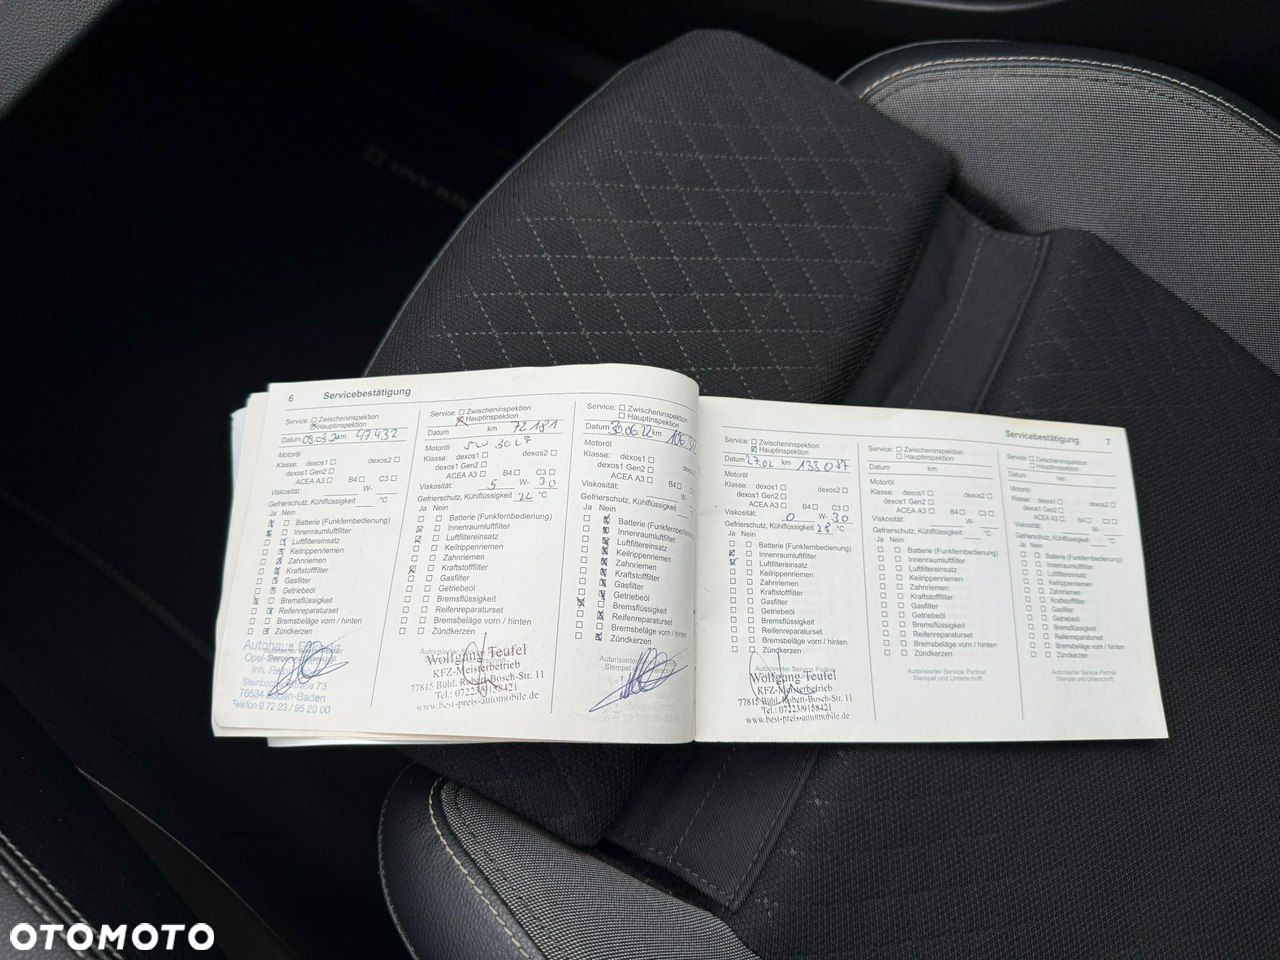 6 Servicebestätigung
Service: Zwischeninspektion
Hauptinspektion
Datum 47432
Motoröl
Klasse: dexos1 dexos2
dexos1 Gen2
ACEA A3 B4 C3
Viskosität: W-
Gefrierschutz, Kühlflüssigkeit °C
Ja Nein
Batterie (Funkfernbedienung)
Innenraumluftfilter
Luftfiltereinsatz
Keilrippenriemen
Zahnriemen
Kraftstofffilter
Gasfilter
Getriebeöl
Bremsflüssigkeit
Reifenreparaturset
Bremsbeläge vorn / hinten
Zündkerzen
Autohaus
Opel-Service
Inh.
Steinbacher 73
76534 Baden-Baden
Telefon 0 72 23 / 95 20 00
Service: Zwischeninspektion
Hauptinspektion
Datum km 72181
Motoröl 5W30
Klasse: dexos1 dexos2
dexos1 Gen2
ACEA A3 B4 C3
Viskosität: 5 W- 30
Gefrierschutz, Kühlflüssigkeit °C
Ja Nein
Batterie (Funkfernbedienung)
Innenraumluftfilter
Luftfiltereinsatz
Keilrippenriemen
Zahnriemen
Kraftstofffilter
Gasfilter
Getriebeöl
Bremsflüssigkeit
Reifenreparaturset
Bremsbeläge vorn / hinten
Zündkerzen
Wolfgang Teufel
KFZ-Meisterbetrieb
77815 Bühl, Robert-Bosch-Str. 11
Tel.: 07223/9158421
www.best-preis-automobile.de
Service: Zwischeninspektion
Hauptinspektion
Datum 30.06.22 km
Motoröl
Klasse: dexos1
dexos1 Gen2
ACEA A3 B4
Viskosität: W-
Gefrierschutz, Kühlflüssigkeit
Ja Nein
Batterie (Funkfernbedienung)
Innenraumluftfilter
Luftfiltereinsatz
Keilrippenriemen
Zahnriemen
Kraftstofffilter
Gasfilter
Getriebeöl
Bremsflüssigkeit
Reifenreparaturset
Bremsbeläge vorn / hinten
Zündkerzen
Autorisierter Service
Stempel und
Servicebestätigung 7
Service: Zwischeninspektion
Hauptinspektion
Datum 27.02 km 133087
Motoröl
Klasse: dexos1 dexos2
dexos1 Gen2
ACEA A3 B4 C3
Viskosität: 0 W- 30
Gefrierschutz, Kühlflüssigkeit 28 °C
Ja Nein
Batterie (Funkfernbedienung)
Innenraumluftfilter
Luftfiltereinsatz
Keilrippenriemen
Zahnriemen
Kraftstofffilter
Gasfilter
Getriebeöl
Bremsflüssigkeit
Reifenreparaturset
Bremsbeläge vorn / hinten
Zündkerzen
Autorisierter Service Partner
Wolfgang Teufel
KFZ-Meisterbetrieb
77815 Bühl, Robert-Bosch-Str. 11
Tel.: 07223/9158421
www.best-preis-automobile.de
Service: Zwischeninspektion
Hauptinspektion
Datum km
Motoröl
Klasse: dexos1 dexos2
dexos1 Gen2
ACEA A3 B4 C3
Viskosität: W-
Gefrierschutz, Kühlflüssigkeit °C
Ja Nein
Batterie (Funkfernbedienung)
Innenraumluftfilter
Luftfiltereinsatz
Keilrippenriemen
Zahnriemen
Kraftstofffilter
Gasfilter
Getriebeöl
Bremsflüssigkeit
Reifenreparaturset
Bremsbeläge vorn / hinten
Zündkerzen
Autorisierter Service Partner
Stempel und Unterschrift
Service: Zwischeninspektion
Hauptinspektion
Datum km
Motoröl
Klasse: dexos1 dexos2
dexos1 Gen2
ACEA A3 B4 C3
Viskosität: W-
Gefrierschutz, Kühlflüssigkeit °C
Ja Nein
Batterie (Funkfernbedienung)
Innenraumluftfilter
Luftfiltereinsatz
Keilrippenriemen
Zahnriemen
Kraftstofffilter
Gasfilter
Getriebeöl
Bremsflüssigkeit
Reifenreparaturset
Bremsbeläge vorn / hinten
Zündkerzen
Autorisierter Service Partner
Stempel und Unterschrift
OTOMOTO